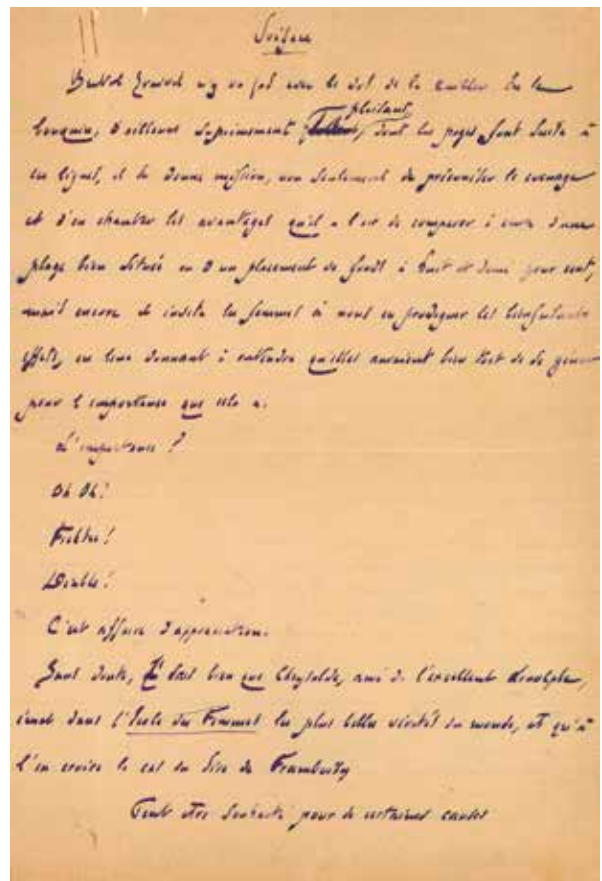 Préface
n'y va pas avec le dos de la cuiller. En ce
bouquin, d'ailleurs suprêmement plaisant, dont les pages font suite à
ces lignes, il se donne mission, non seulement de préconiser le cocuage
et d'en chanter les avantages qu'il a l'air de comparer à ceux d'une
plage bien située ou d'un placement de fonds à huit et demi pour cent,
mais encore d'inviter les femmes à nous en prodiguer les bienfaisants
effets, en leur donnant à entendre qu'elles auraient bien tort de se gêner
pour l'importance que cela a.
L'importance ?
Oh Oh !
Fichtre !
Diable !
C'est affaire d'appréciation.
Sans doute, je sais bien que Chrysalde, ami de l'excellent Arnolphe,
émet dans l'Ecole des Femmes les plus belles vérités du monde, et qu'à
l'en croire le cas du Sire de Framboisy
Peut être souhaité pour de certaines causes